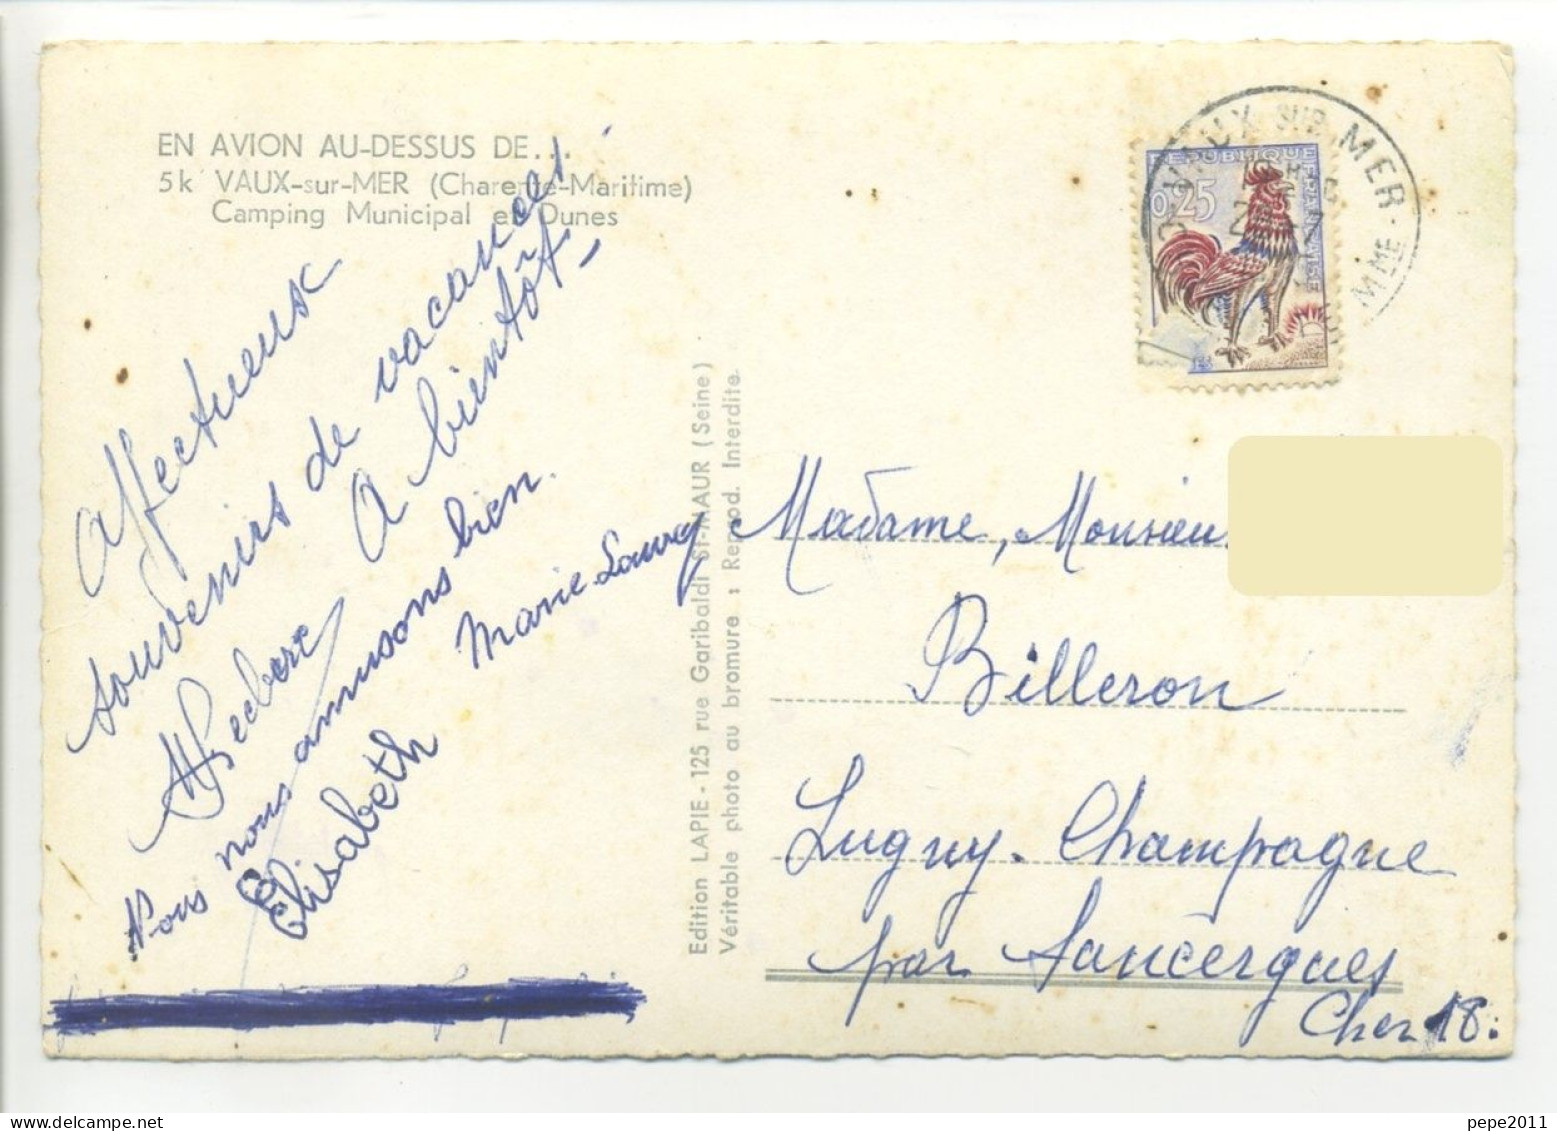 EN AVION AU-DESSUS DE...
5k VAUX-sur-MER (Charente-Maritime)
Camping Municipal et Dunes
Affectueux
souvenirs de vacances
A bientôt
Nous nous amusons bien.
Elisabeth
Marie
Edition LAPIE - 125 rue Garibaldi St-MAUR (Seine)
Véritable photo au bromure : Reprod. Interdite
REPUBLIQUE FRANCAISE
0,25
VAUX SUR MER
MME
Madame, Monsieur
Billeron
Lugny-Champagne
par Sancergues
Cher 18.
pepe2011